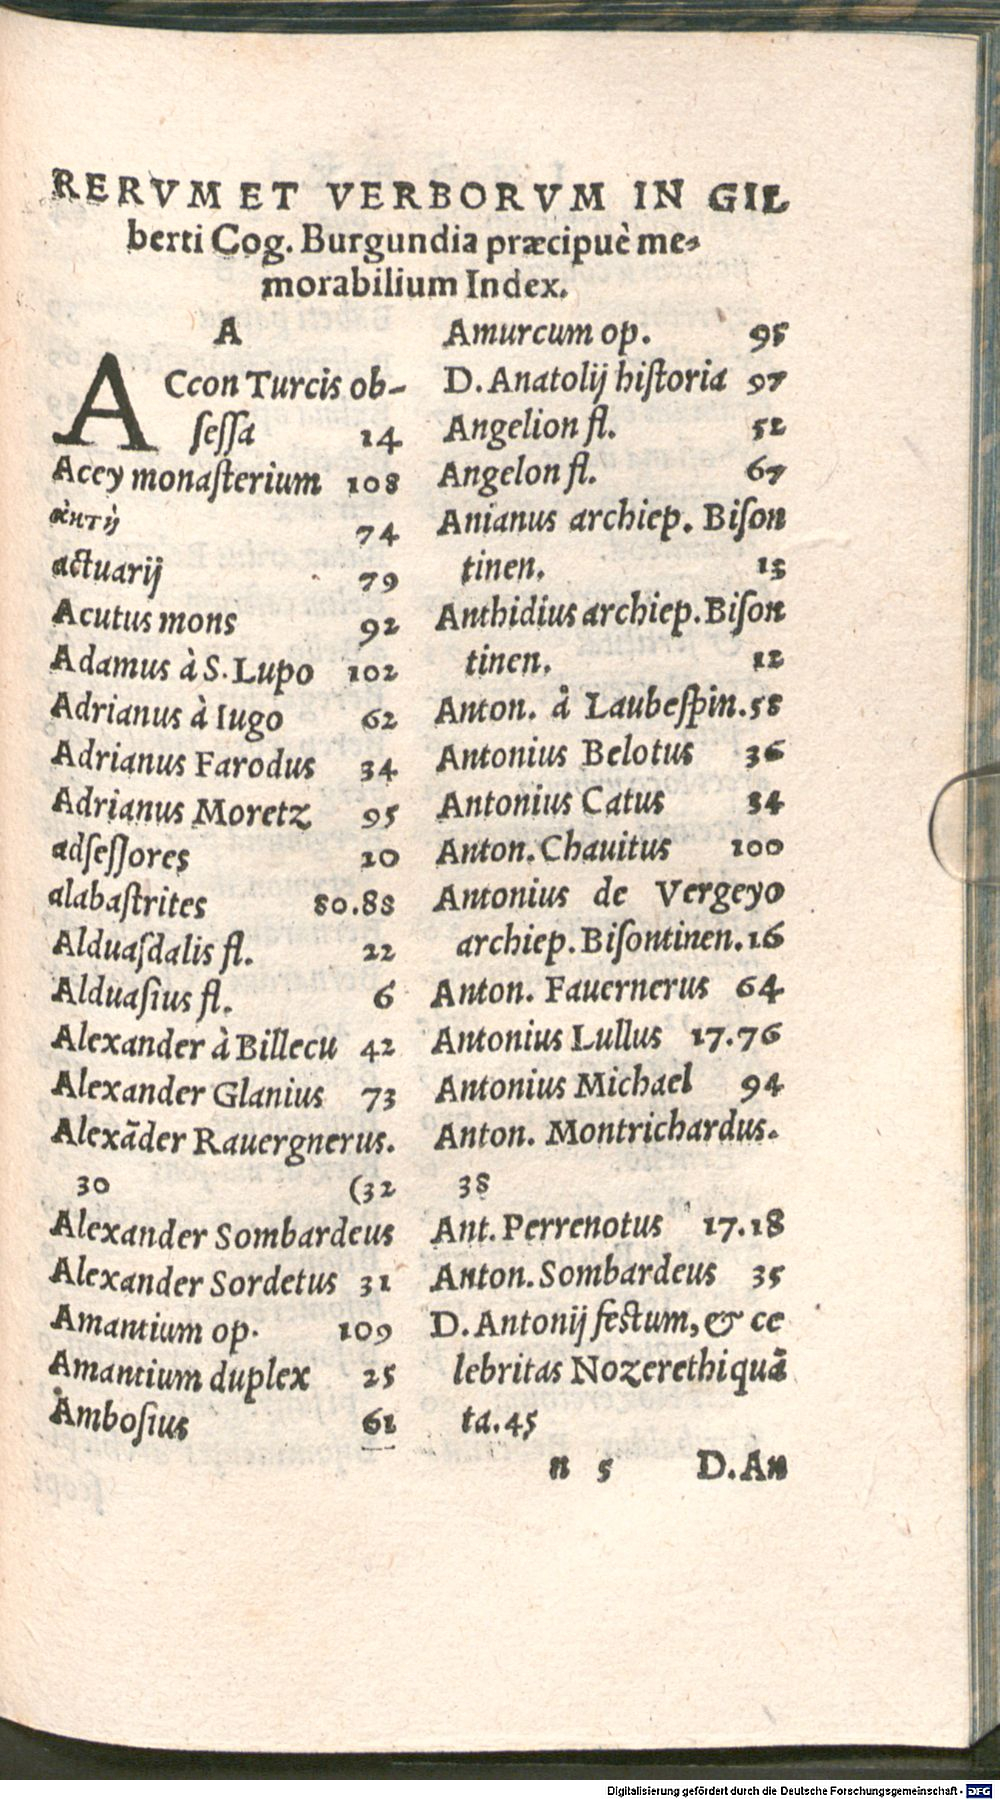 RERVM ET VERBORVM IN GIL
berti Cog. Burgundia præcipuè me-
morabilium Index.
A
ACcon Turcis ob-
ſeſſa 14
Acey monaſterium 108
74
actuarij 79
Acutus mons 92
Adamus à S. Lupo 102
Adrianus à Iugo 62
Adrianus Farodus 34
Adrianus Moretz 95
adſeſſores 20
alabaſtrites 80.88
Alduaſdalis fl. 22
Alduaſius fl. 6
Alexander à Billecu 42
Alexander Glanius 73
Alexãder Rauergnerus.
30 (32
Alexander Sombardeus
Alexander Sordetus 31
Amantium op. 109
Amantium duplex 25
Amboſius 61
Amurcum op. 95
D. Anatolij hiſtoria 97
Angelion fl. 52
Angelon fl. 67
Anianus archiep. Biſon
tinen. 13
Anthidius archiep. Biſon
tinen. 12
Anton. à Laubeſpin. 58
Antonius Belotus 36
Antonius Catus 34
Anton. Chauitus 100
Antonius de Vergeyo
archiep. Biſontinen. 16
Anton. Fauernerus 64
Antonius Lullus 17.76
Antonius Michael 94
Anton. Montrichardus.
38
Ant. Perrenotus 17.18
Anton. Sombardeus 35
D. Antonij feſtum, & ce
lebritas Nozerethi quã
ta. 45
n 5 D. An
Digitalisierung gefördert durch die Deutsche Forschungsgemeinschaft - DFG